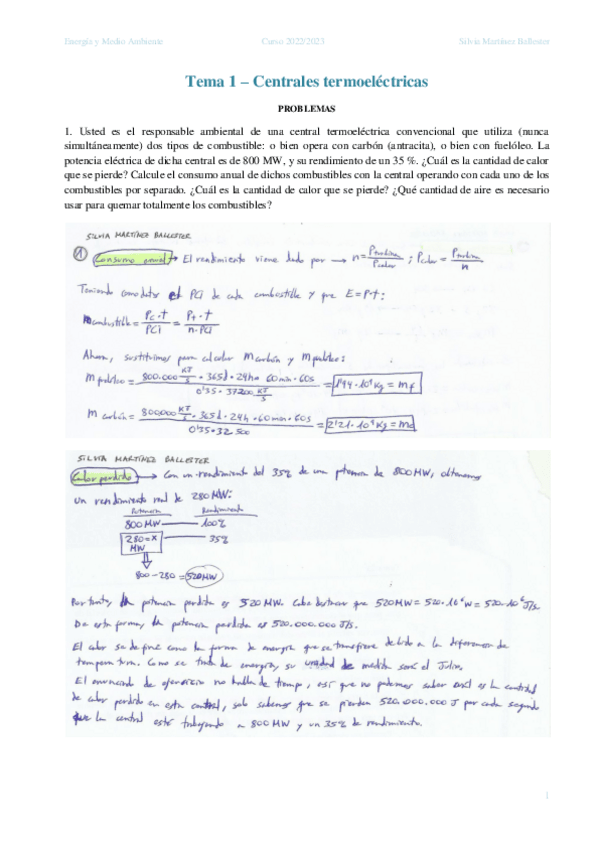 Energía y Medio Ambiente Curso 2022/2023 Silvia Martínez Ballester
Tema 1 – Centrales termoeléctricas
PROBLEMAS
1. Usted es el responsable ambiental de una central termoeléctrica convencional que utiliza (nunca
simultáneamente) dos tipos de combustible: o bien opera con carbón (antracita), o bien con fuelóleo. La
potencia eléctrica de dicha central es de 800 MW, y su rendimiento de un 35 %. ¿Cuál es la cantidad de calor
que se pierde? Calcule el consumo anual de dichos combustibles con la central operando con cada uno de los
combustibles por separado. ¿Cuál es la cantidad de calor que se pierde? ¿Qué cantidad de aire es necesario
usar para quemar totalmente los combustibles?
SILVIA MARTÍNEZ BALLESTER
① Consumo anual → El rendimiento viene dado por → n = Pturbina / Pcalor ; Pcalor = Pturbina / n
Teniendo como datos el PCI de cada combustible y que E=P·t:
mcombustible = Pc·t / PCI = Pt·t / n·PCI
Ahora, sustituimos para calcular M carbón y M fuelóleo:
M fuelóleo = 800.000 KJ/s · 365d · 24h · 60min · 60s / 0'35 · 37200 KJ = 1'94·10⁹ Kg = mf
M carbón = 800000 KJ/s · 365d · 24h · 60min · 60s / 0'35 · 32.500 = 2'21·10⁹ Kg = mc
SILVIA MARTÍNEZ BALLESTER
Calor perdido → Con un rendimiento del 35% de una potencia de 800MW, obtenemos
un rendimiento real de 280MW:
Potencia Rendimiento
800 MW 100%
280=x MW 35%
800 - 280 = 520MW
Por tanto, la potencia perdida es 520 MW. Cabe destacar que 520MW = 520·10⁶W = 520·10⁶ J/s.
De esta forma, la potencia perdida es 520.000.000 J/s.
El calor se define como la forma de energía que se transfiere debido a la diferencia de
temperatura. Como se trata de energía, su unidad de medida será el Julio.
El enunciado de ejercicio no habla de tiempo, así que no podemos saber cuál es la cantidad
de calor perdido en esta central, solo sabemos que se pierden 520.000.000 J por cada segundo
que la central esté trabajando a 800 MW y un 35% de rendimiento.
1